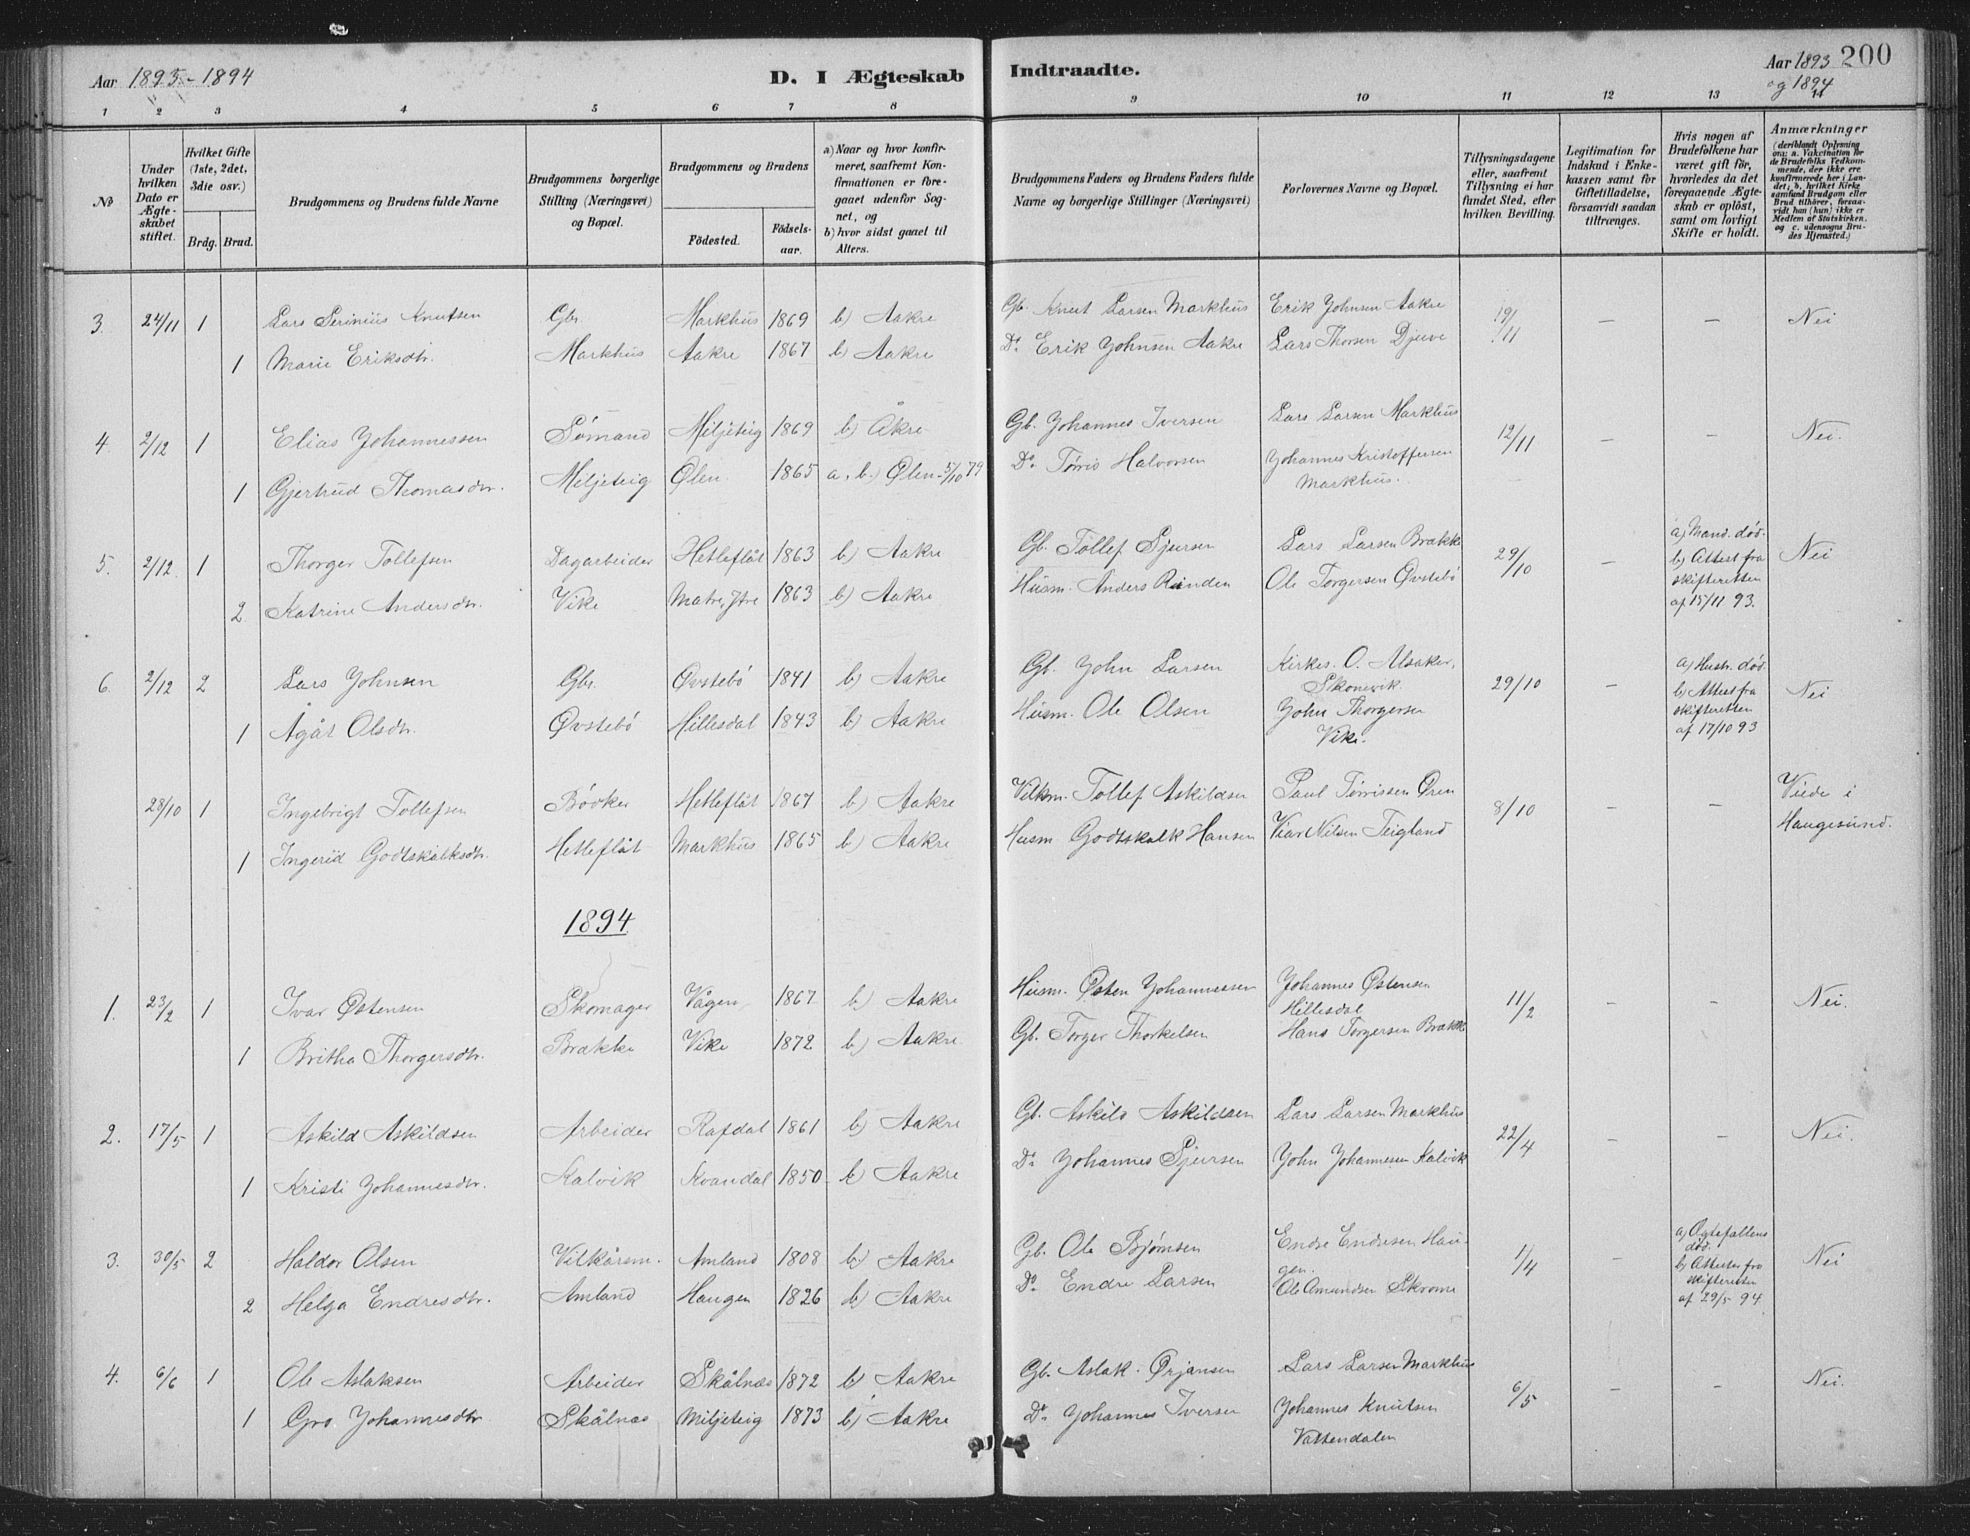 Aar 1893-1894
D. I Ægteskab Indtraadte.
Aar 1893 200
og 1894
1 2 3 4 5 6 7 8 9 10 11 12 13 14
No
Under hvilken Dato er Ægteskabet stiftet.
Hvilket Gifte (1ste, 2det, 3die osv.)
Brdg. Brud.
Brudgommens og Brudens fulde Navne
Brudgommens borgerlige Stilling (Næringsvei) og Bopæl.
Brudgommens og Brudens
Fødested. Fødselsaar.
a) Naar og hvor konfirmeret, saafremt Konfirmationen er foregaaet udenfor Sognet, og
b) hvor sidst gaaet til Alters.
Brudgommens Faders og Brudens Faders fulde Navne og borgerlige Stillinger (Næringsvei)
Forlovernes Navne og Bopæl.
Tillysningsdagene eller, saafremt Tillysning ei har fundet Sted, efter hvilken Bevilling.
Legitimation for Indskud i Enkekassen samt for Giftetilladelse, forsaavidt saadan tiltrænges.
Hvis nogen af Brudefolkene har været gift før, hvorledes da det foregaaende Ægteskab er opløst, samt om lovligt Skifte er holdt.
Anmærkninger
(deriblandt Oplysning om: a. Vakcination for de Brudefolks Vedkommende, der ikke ere konfirmerede her i Landet; b. hvilket Kirkesamfund Brudgom eller Brud tilhører, forsaavidt han (hun) ikke er Medlem af Statskirken, og c. udensogns Brudes Hjemsted.)
3. 24/11 1 Lars Serinius Knutsen Gbr. Markhus 1869 b) Aakre Gb. Knut Larsen Markhus Erik Johnsen Aakre 19/11 – – Nei
1 Marie Eriksdtr. Markhus Aakre 1867 b) Aakre Do. Erik Johnsen Aakre Lars Thorsen Djuve
4. 2/12 1 Elias Johannessen Sømand Miljeteig 1869 b) Åkre Gb. Johannes Iversen Lars Larsen Markhus 12/11 – – Nei.
1 Gjertrud Thomasdtr. Miljeteig Ølen 1865 a, b) Ølen 5/10 79 Do. Tørris Halvorsen Johannes Kristoffersen
Markhus.
5. 2/12 1 Thorger Tollefsen Dagarbeider Hetleflåt 1863 b) Aakre Gb. Tollef Sjursen Lars Larsen Brække 29/10 – a) Mand. død. Nei
2 Katrine Andersdtr. Vike Matre, Ytre 1863 b) Aakre Husm. Anders Rinden Ole Torgersen Øvstebø b) Attest fra
skifteretten
af 15/11 93.
6. 2/12 2 Lars Johnsen Gbr. Øvstebø 1841 b) Aakre Gb. John Larsen Kirkes. O. Alsaker, 29/10 – a) Hustr. død. Nei
Skonevik.
1 Ågåt Olsdtr. Øvstebø Hillesdal 1843 b) Aakre Husm. Ole Olsen John Thorgersen b) Attest fra
Vike. skifteretten
af 17/10 93
28/10 1 Ingebrigt Tollefsen Bødker Hetleflåt 1867 b) Aakre Vilkm. Tollef Askildsen Paul Tørrissen Øren 8/10 – – Viede i
1 Ingerid Godtskalksdtr. Hetleflåt Markhus 1865 b) Aakre Husm Godtskalk Hansen Nilsen Teigland Haugesund.
1894
1. 23/2 1 Ivar Østensen Skomager Vågen 1867 b) Aakre Husm. Østen Johannessen Johannes Østensen 11/2 – – Nei.
Hillesdal
1 Britha Thorgersdtr. Brække Vike 1872 b) Aakre Gb. Torger Thorkelsen Hans Torgersen Brække
2. 17/5 1 Askild Askildsen Arbeider Rafdal 1861 b) Aakre Gb. Askild Askildsen Lars Larsen Markhus 22/4 – – Nei.
1 Kristi Johannesdtr. Kalvik Kvandal 1850 b) Aakre Do. Johannes Sjursen John Johannesen Kalvik
3. 30/5 2 Haldor Olsen Vilkårsm. Amland 1808 b) Aakre Gb. Ole Bjørnsen Endre Endresen Hau- 1/4 – a) Ægtefællens Nei
gen. død.
2 Helga Endresdtr. Amland Haugen 1826 b) Aakre Do. Endre Larsen Ole Amundsen Skromme b) Attester fra
skifteretten
af 29/5 94
4. 6/6 1 Ole Aslaksen Arbeider Skålnæs 1872 b) Aakre Gb. Aslak Ørjansen Lars Larsen Markhus 6/5 – – Nei.
1 Gro Johannesdtr Skålnæs Miljeteig 1873 b) Aakre Do. Johannes Iversen Johannes Knutsen
Vattendalen